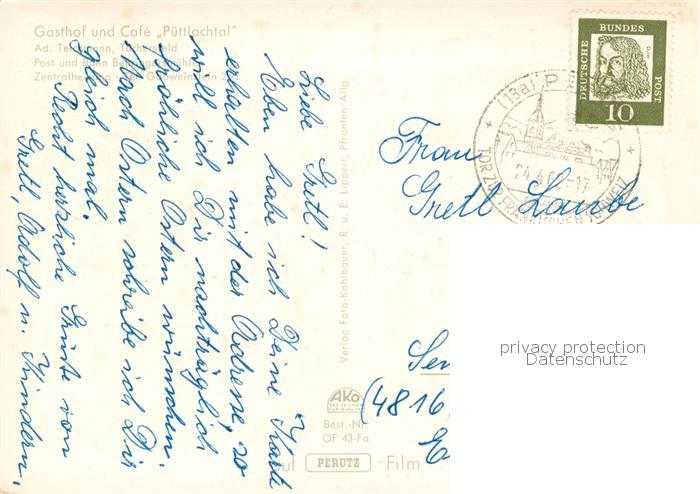 Gasthof und Café „Püttlachtal"
Ad. Tüchersfeld
Post und Bahn
Zentralheizung
Liebe Gretl!
Eben habe ich Deine Karte
erhalten mit der Adresse, so
will ich Dir nachträglich
fröhliche Ostern wünschen.
Nach Ostern schreibe ich Dir
gleich mal.
Recht herzliche Grüße von
Gretl, Adolf u. Kindern.
Verlag Foto-Kohlbauer, R. u. E. Lippert, Pfronten Allg.
AKO
Best.-Nr.
OF 43-Fa
auf PERUTZ-Film
DEUTSCHE
BUNDES
POST
10
(13a) P
24.4.6 -17
TOR ZUR FRÄNKISCHEN SCHWEIZ
Frau
Gretl Laube
(4816)
privacy protection
Datenschutz